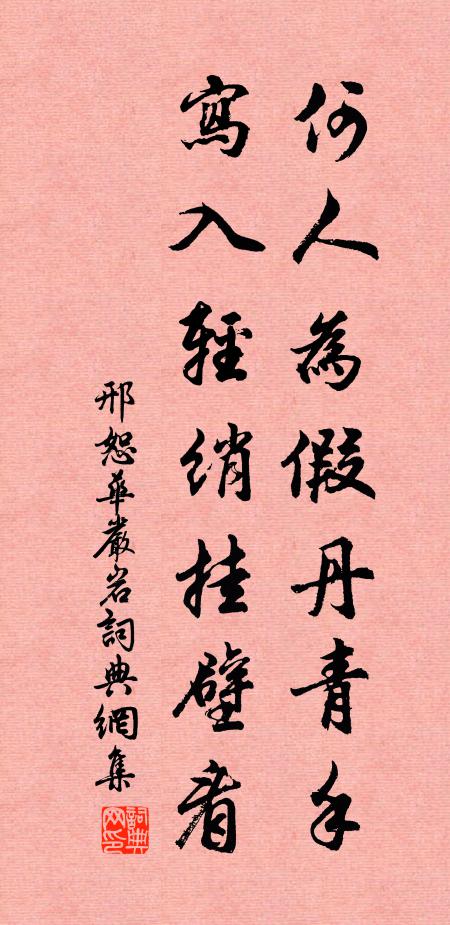 何人為假丹青手
寫入輕綃挂壁看
邢恕華嚴岩詞典網集
詞典网印